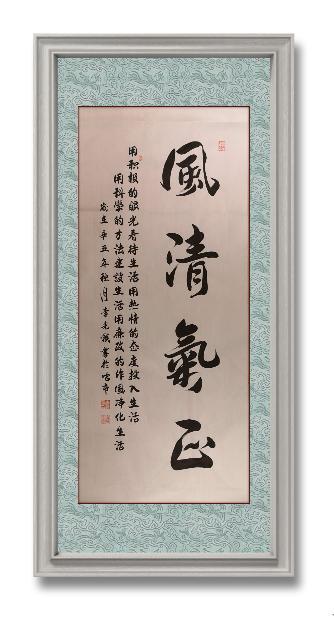 風清氣正
用积极的眼光看待生活用热情的态度投入生活
用科学的方法建设生活用廉政的作風净化生活
岁在辛丑年秋月李